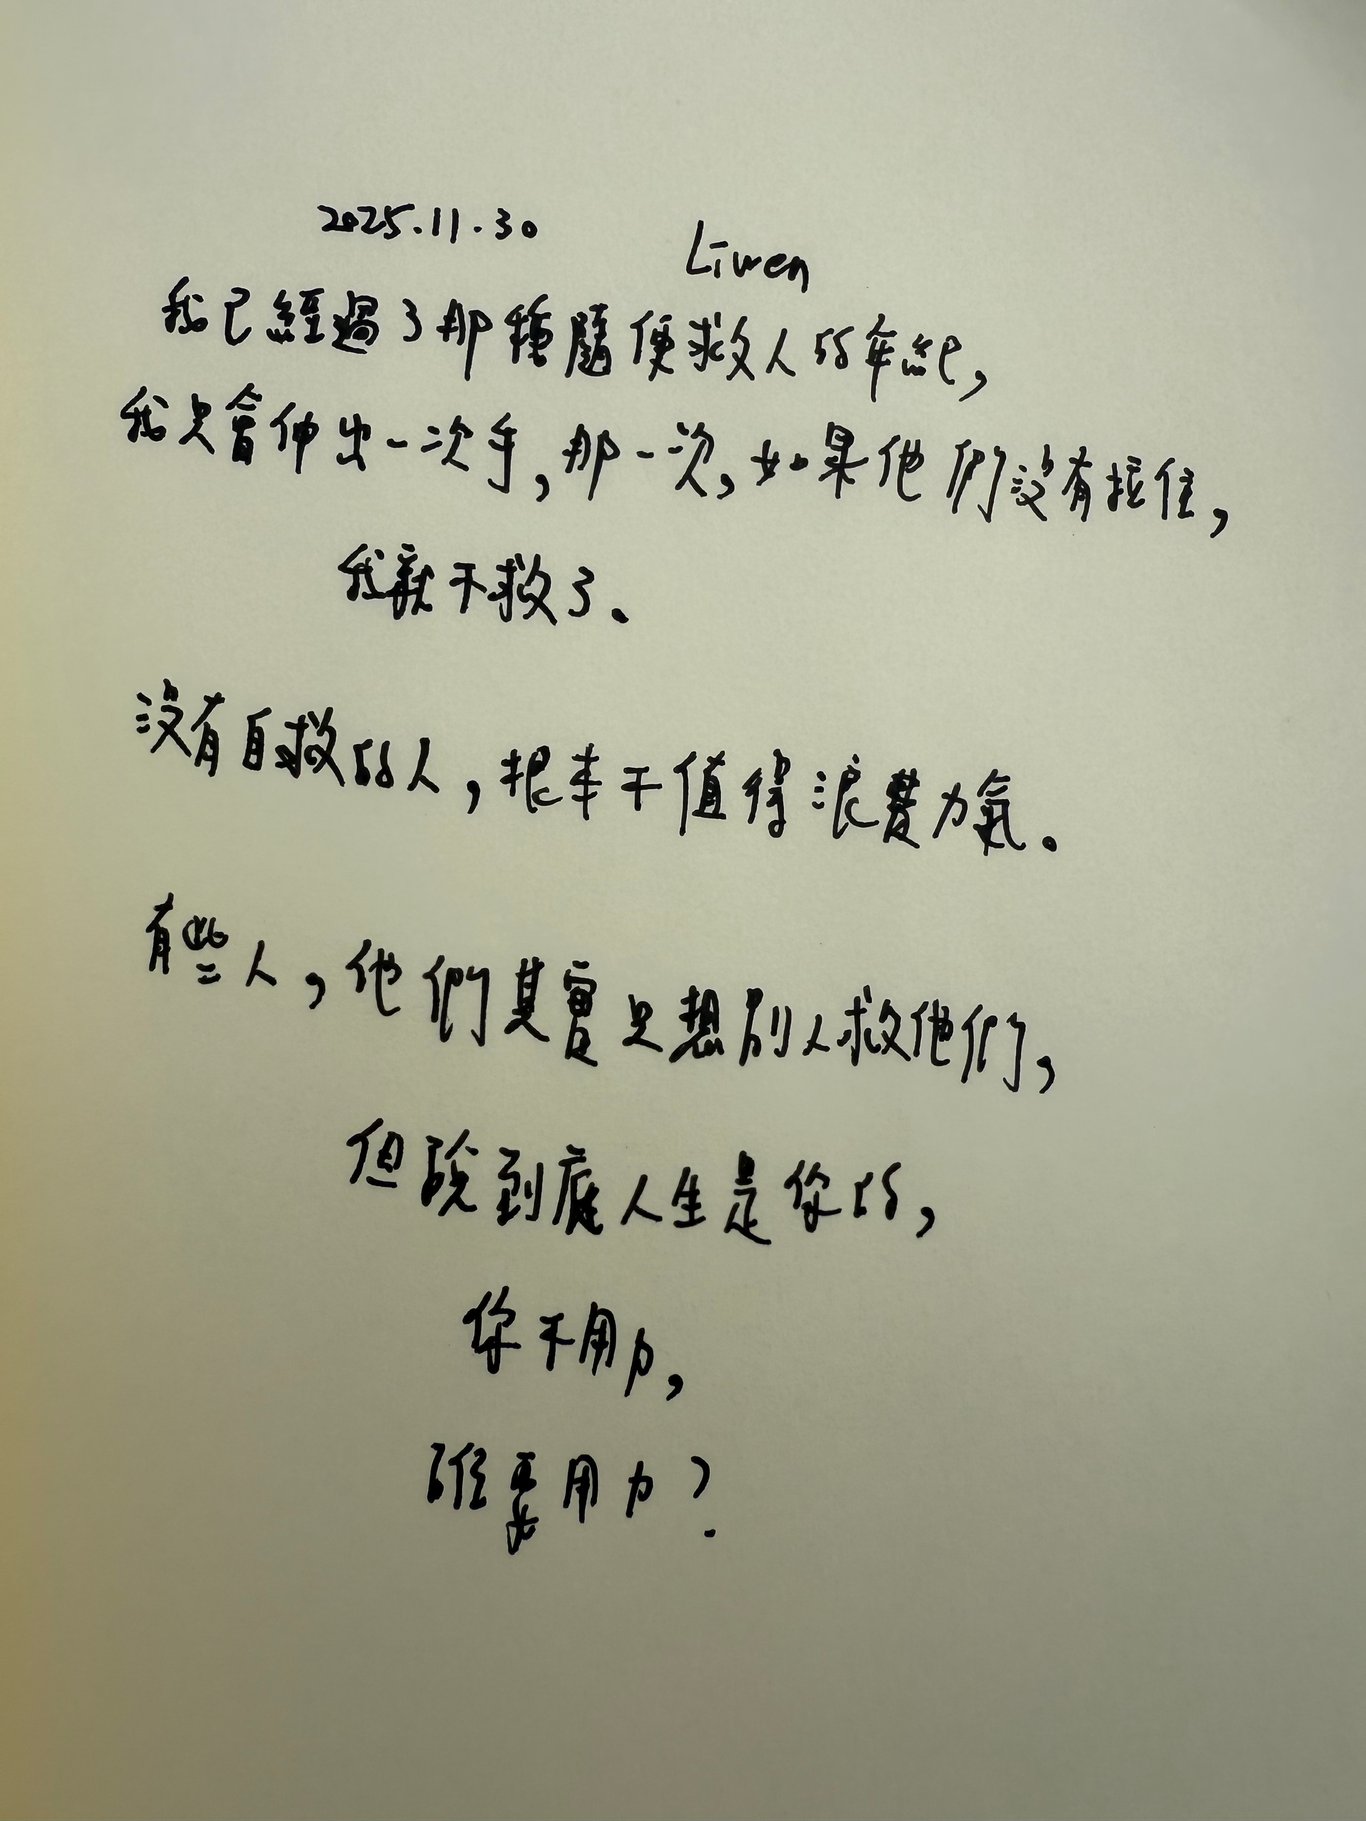 2025.11.30
Liwen
我已經過了那種隨便救人的年紀，
我只會伸出一次手，那一次，如果他們沒有拉住，
我就不救了。
沒有自救的人，根本不值得浪費力氣。
有些人，他們其實只想別人救他們，
但說到底人生是你的，
你不用力，
誰要用力？